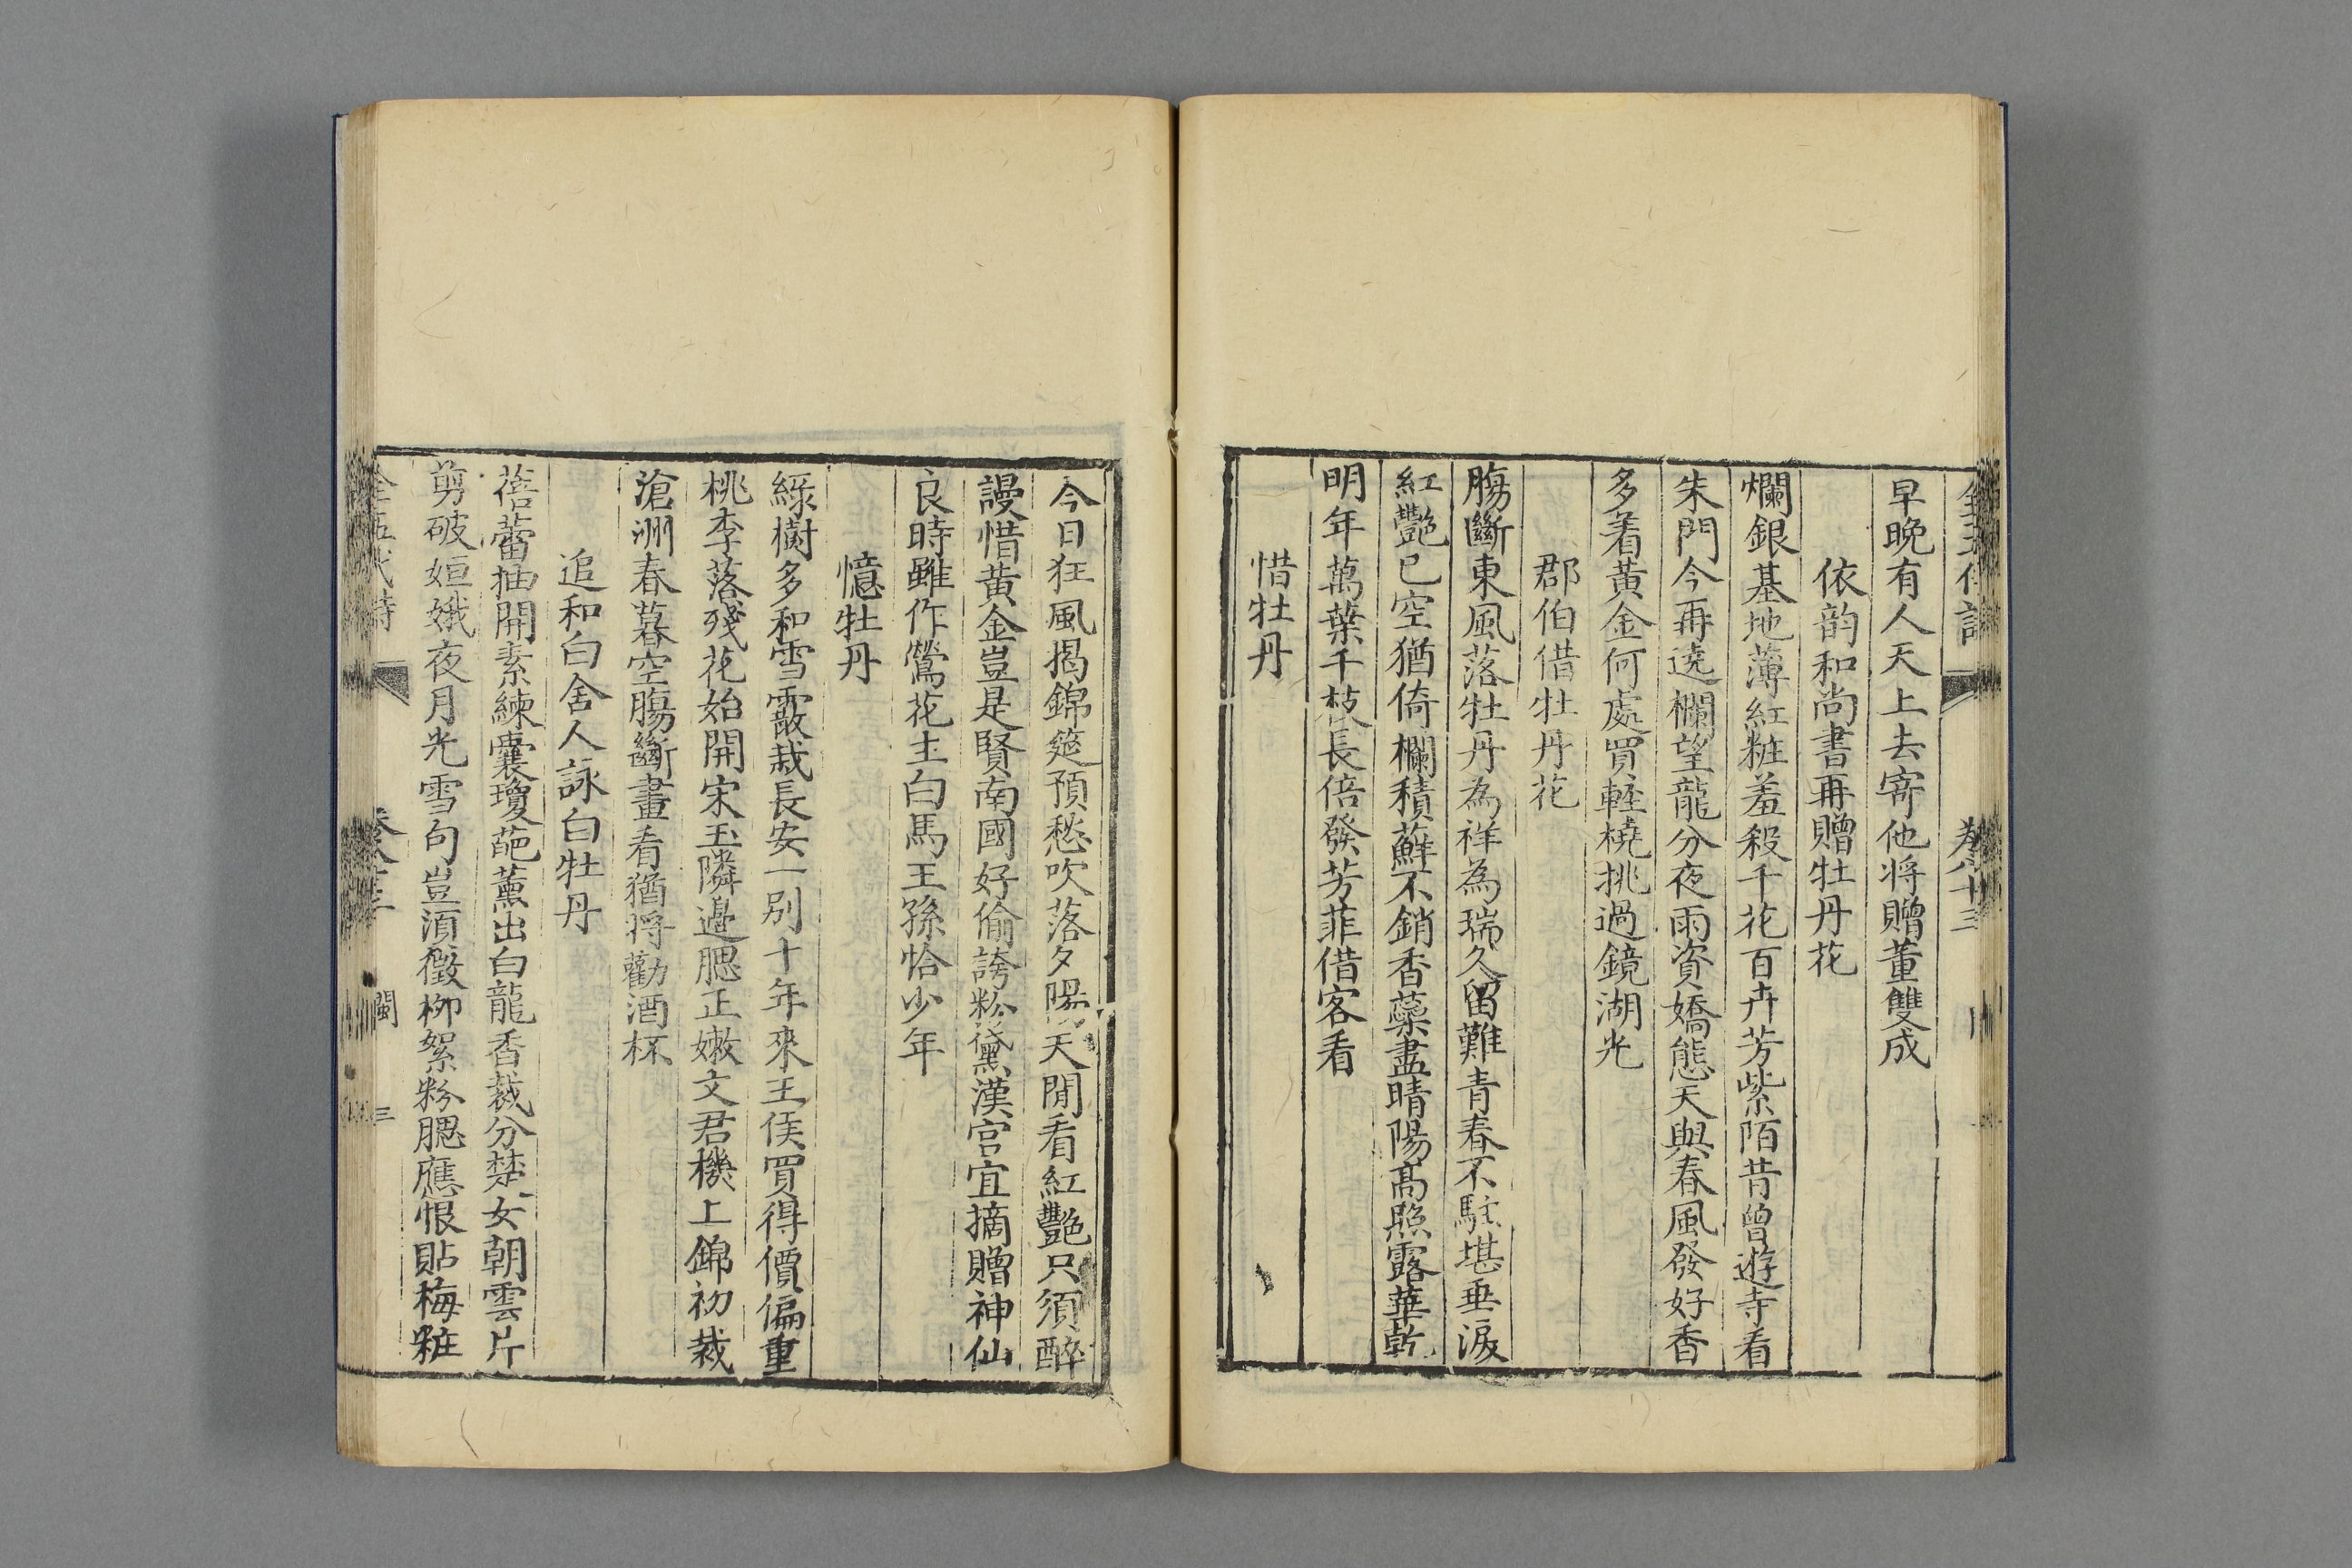 早晚有人天上去寄他将贈董雙成
依韵和尚書再贈牡丹花
爛銀基地薄紅粧羞殺千花百卉芳紫陌昔曾遊寺看
朱門今再遶欄望龍分夜雨資嬌態天與春風發好香
多着黃金何處買輕橈挑過鏡湖光
郡伯借牡丹花
腸斷東風落牡丹為祥為瑞久留難青春不駐堪垂淚
紅艷已空猶倚欄積蘚不銷香蘂盡晴陽髙照露華乾
明年萬葉千枝長倍發芳菲借客看
惜牡丹
今日狂風揭錦筵預愁吹落夕陽天閒看紅艷只須醉
謾惜黃金豈是賢南國好偷誇粉黛漢宫宜摘贈神仙
良時雖作鶯花主白馬王孫恰少年
憶牡丹
綠樹多和雪霰栽長安一别十年來王侯買得價偏重
桃李落殘花始開宋玉隣邊腮正嫩文君機上錦初裁
滄洲春暮空腸斷畫看猶将勸酒杯
追和白舍人詠白牡丹
蓓蕾抽開素練囊瓊葩薰出白龍香裁分楚女朝雲片
剪破姮娥夜月光雪句豈湏徵柳絮粉腮應恨貼梅粧
閩
三